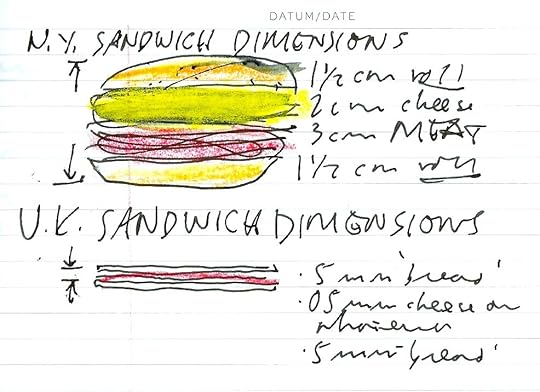 DATUM/DATE
N.Y. SANDWICH DIMENSIONS
1½ cm roll
2 cm cheese
3 cm MEAT
1½ cm roll
U.K. SANDWICH DIMENSIONS
.5 mm 'bread'
.05 mm cheese or
whatever
.5 mm 'bread'